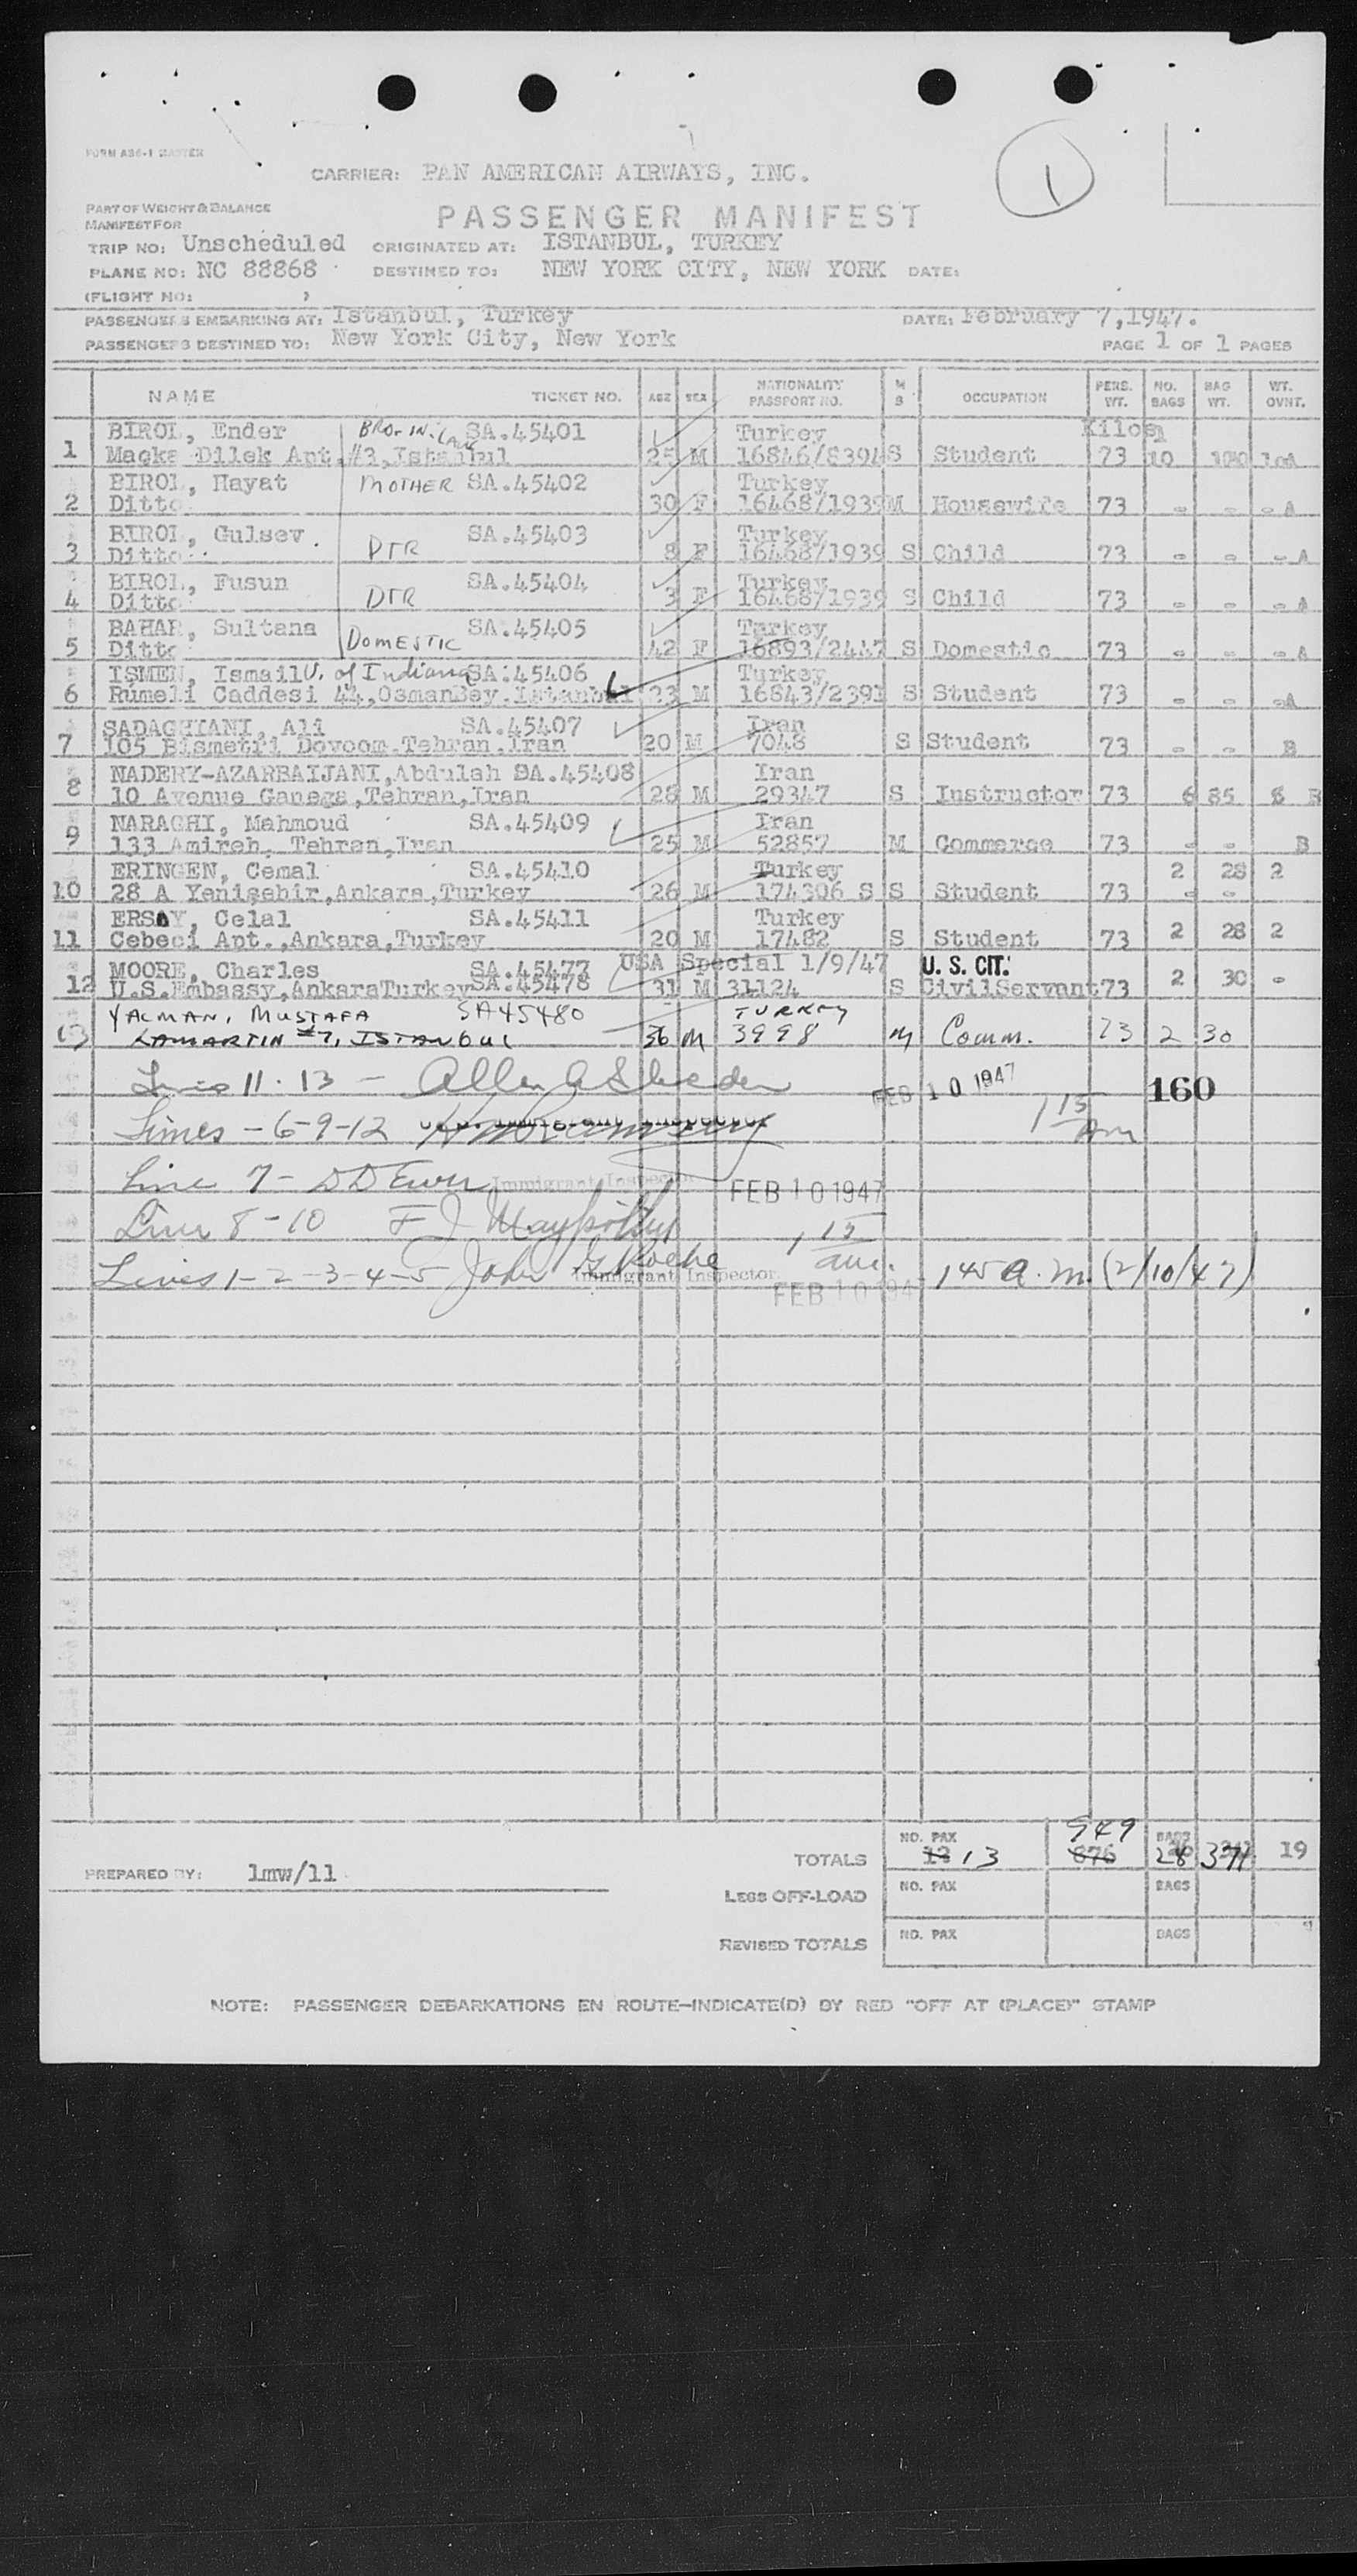 FORM ASG-1 MASTER
CARRIER: PAN AMERICAN AIRWAYS, INC.
1
PART OF WEIGHT & BALANCE
MANIFEST FOR
PASSENGER MANIFEST
TRIP NO: Unscheduled ORIGINATED AT: ISTANBUL, TURKEY
PLANE NO: NC 88868 DESTINED TO: NEW YORK CITY, NEW YORK DATE:
(FLIGHT NO: )
PASSENGERS EMBARKING AT: Istanbul, Turkey DATE: February 7, 1947.
PASSENGERS DESTINED TO: New York City, New York PAGE 1 OF 1 PAGES
NAME TICKET NO. AGE SEX NATIONALITY PASSPORT NO. M S OCCUPATION PERS. WT. NO. BAGS BAG WT. WT. OVNT.
BIROL, Ender BRO-IN-LAW SA.45401 Turkey Kilos
1 Macka Dilek Apt.#3,Istanbul 25 M 16846/8394 S Student 73 10
BIROL, Hayat MOTHER SA.45402 Turkey
2 Ditto 30 F 16468/1939 M Housewife 73 - - - A
BIROL, Gulsev DTR SA.45403 Turkey
3 Ditto 8 F 16468/1939 S Child 73 - - - A
BIROL, Fusun DTR SA.45404 Turkey
4 Ditto 3 F 16468/1939 S Child 73 - - - A
BAHAR, Sultana DOMESTIC SA.45405 Turkey
5 Ditto 42 F 16893/2447 S Domestic 73 - - - A
ISMEN, Ismail U. of Indiana SA.45406 Turkey
6 Rumeli Caddesi 44,OsmanBey.Istanbul 23 M 16843/2391 S Student 73 - - -A
SADAGHIANI, Ali SA.45407 Iran
7 105 Bismetri Dovoom.Tehran.Iran 20 M 7048 S Student 73 - - B
NADERY-AZARBAIJANI,Abdulah SA.45408 Iran
8 10 Avenue Ganega,Tehran,Iran 28 M 29347 S Instructor 73 6 85 8 B
NARAGHI, Mahmoud SA.45409 Iran
9 133 Amireh, Tehran,Iran 25 M 52857 M Commerce 73 - - B
ERINGEN, Cemal SA.45410 Turkey 2 28 2
10 28 A Yenişehir,Ankara,Turkey 26 M 174306 S S Student 73 - -
ERSOY, Celal SA.45411 Turkey
11 Cebeci Apt.,Ankara,Turkey 20 M 17482 S Student 73 2 28 2
MOORE, Charles SA.45477 USA Special 1/9/47 U. S. CIT.
12 U.S.Embassy,AnkaraTurkey SA.45478 31 M 31124 S CivilServant 73 2 30 -
YALMAN, MUSTAFA SA45480 TURKEY
13 LAMARTIN #7, ISTANBUL 36 M 3998 M Comm. 73 2 30
Lines 11 - 13 - FEB 10 1947 160
Lines - 6-9-12 1 15 Am
Line 7 - Immigrant Inspector FEB 10 1947
Line 8-10 1 15 am.
Lines 1-2-3-4-5 John G Roche Immigrant Inspector 145 a.m. (2/10/47)
FEB 10 1947
TOTALS NO. PAX 12 13 876 949 BAGS 28 371 19
PREPARED BY: lmw/ll
LESS OFF-LOAD NO. PAX BAGS
REVISED TOTALS NO. PAX BAGS
NOTE: PASSENGER DEBARKATIONS EN ROUTE-INDICATE(D) BY RED "OFF AT (PLACE)" STAMP